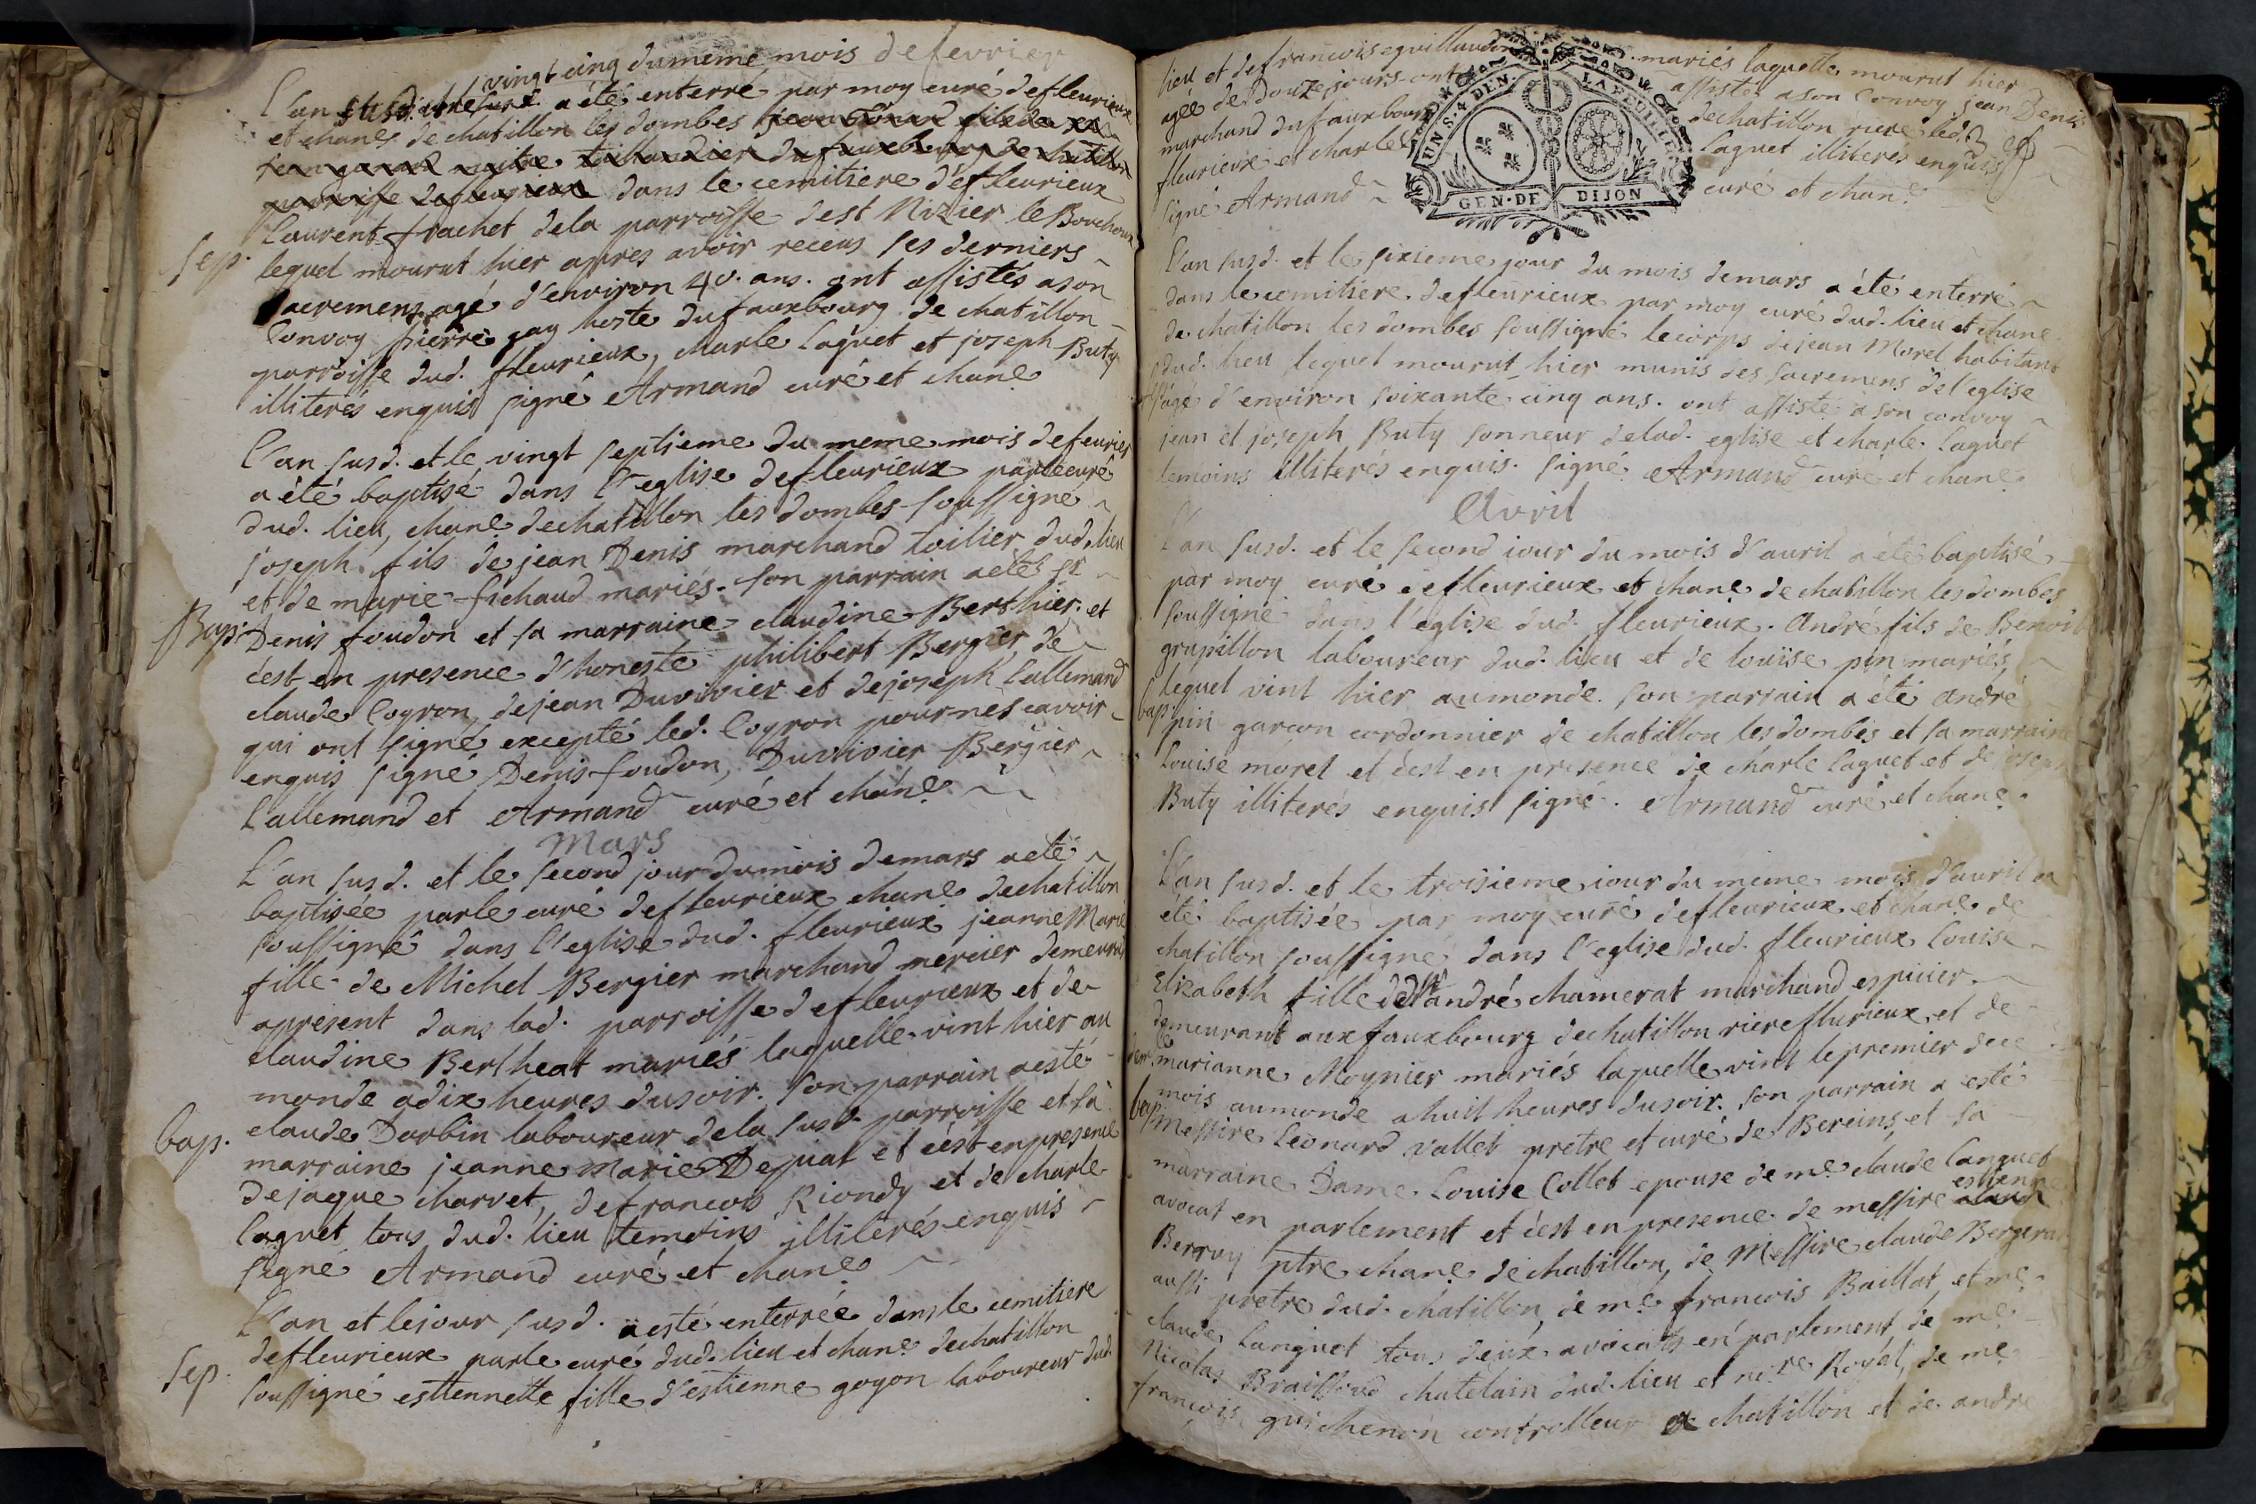 vingt cinq du meme mois de fevrier
L'an susd. et le a été enterré par moy curé de fleurieux
et chane de chatillon les dombes jean fils de
jean maitre taillandier du fauxbourg de chatillon
parroisse de fleurieux dans le cemitiere de fleurieux
Laurent frachet dela parroisse dest Nizier le Bouchoux
Sep.
lequel mourut hier apres avoir receus ses derniers
sacremens agé d'environ 40. ans. ont assistés a son
Convoy pierre gay hoste du fauxbourg de chatillon
parroisse dud. fleurieux, charle Caguet et joseph Buty
illiterés enquis signé Armand curé et chane
L'an susd. et le vingt septieme du meme mois de feurier
a été baptisé dans l'eglise de fleurieux par le curé
dud. lieu, chane de chatillon les dombes soussigné
joseph fils de jean Denis marchand toilier dud. lieu
et de marie fichaud mariés. son parrain a eté sr
Bap.
Denis foudon et sa marraine claudine Berthier. et
c'est en presence d'honeste philibert Bergier, de
claude Coyron, de jean Duvivier et de joseph Lallemand
qui ont signé excepté led. Coyron pour ne scavoir
enquis signé Denis foudon, Duvivier Bergier
Lallemand et Armand curé et chane
Mars
L'an susd. et le second jour du mois de mars a eté
baptisée par le curé de fleurieux chane de chatillon
soussigné dans l'eglise dud. fleurieux jeanne Marie
fille de Michel Bergier marchand mercier demeurant
apresent dans lad. parroisse de fleurieux et de
claudine Bertheat mariés laquelle vint hier au
monde a dix heures du soir. son parrain a esté
claude Darbin laboureur de la susd. parroisse et sa
bap.
marraine jeanne Marie Dequat et c'est en presence
de jaque charvet, de francois Riondy et de charle
Caguet tous dud. lieu temoins illiterés enquis
signé Armand curé et chane
L'an et le jour susd. a esté enterrée dans le cemitiere
de fleurieux par le curé dud. lieu et chane de chatillon
Sep.
soussigné estiennette fille d'estienne goyon laboureur dud.
lieu et de francoise guillaudon mariés laquelle mourut hier
agée de Douze jours. ont assistés a son Convoy jean Denis
marchand du fauxbourg de chatillon riere led.
fleurieux et charle Caguet illiterés enquis
signé Armand curé et chane
GEN. DE DIJON
L'an susd. et le sixieme jour du mois de mars a été enterré
dans le cemitiere de fleurieux par moy curé dud. lieu et chane
de chatillon les dombes soussigné le corps de jean Morel habitant
dud. lieu lequel mourut hier munis des sacremens de l'eglise
agé d'environ soixante cinq ans. ont assisté a son convoy
jean et joseph Buty sonneur de lad. eglise et charle Caguet
temoins illiterés enquis. signé Armand curé et chane
Avril
L'an susd. et le second iour du mois d'auril a été baptisé
par moy curé de fleurieux et chane de chatillon les dombes
soussigné dans l'église dud. fleurieux. André fils de Benoit
grapillon laboureur dud. lieu et de louise pin mariés
lequel vint hier au monde. son parrain a été andré
bap.
pin garçon cordonnier de chatillon les dombes et sa marraine
Louise morel et c'est en presence de charle Caguet et de joseph
Buty illiterés enquis signé. Armand curé et chane.
L'an susd. et le troisieme iour du meme mois d'auril a
été baptisée par moy curé de fleurieux et chane de
chatillon soussigné dans l'eglise dud. fleurieux Louise
Elizabeth fille de sr andré chamerat marchand espicier
demeurant aux fauxbourg de chatillon riere fleurieux et de
dem.le marianne Moynier mariés laquelle vint le premier de ce
mois au monde a huit heures du soir. son parrain a esté
bap.
Messire Leonard Vallet pretre et curé de Bereins, et sa
marraine Dame Louise Collet epouse de me claude Languet
avocat en parlement et c'est en presence de messire estienne
Berruy ptre chane de chatillon, de Messire claude Bergerat
aussi pretre dud. chatillon, de me francois Baillat, et me
claude Languet tous deux avocats en parlement de me
Nicolas Braissoud chatelain dud. lieu et nore Royal, de me
francois guichenon controlleur a chatillon et de andré